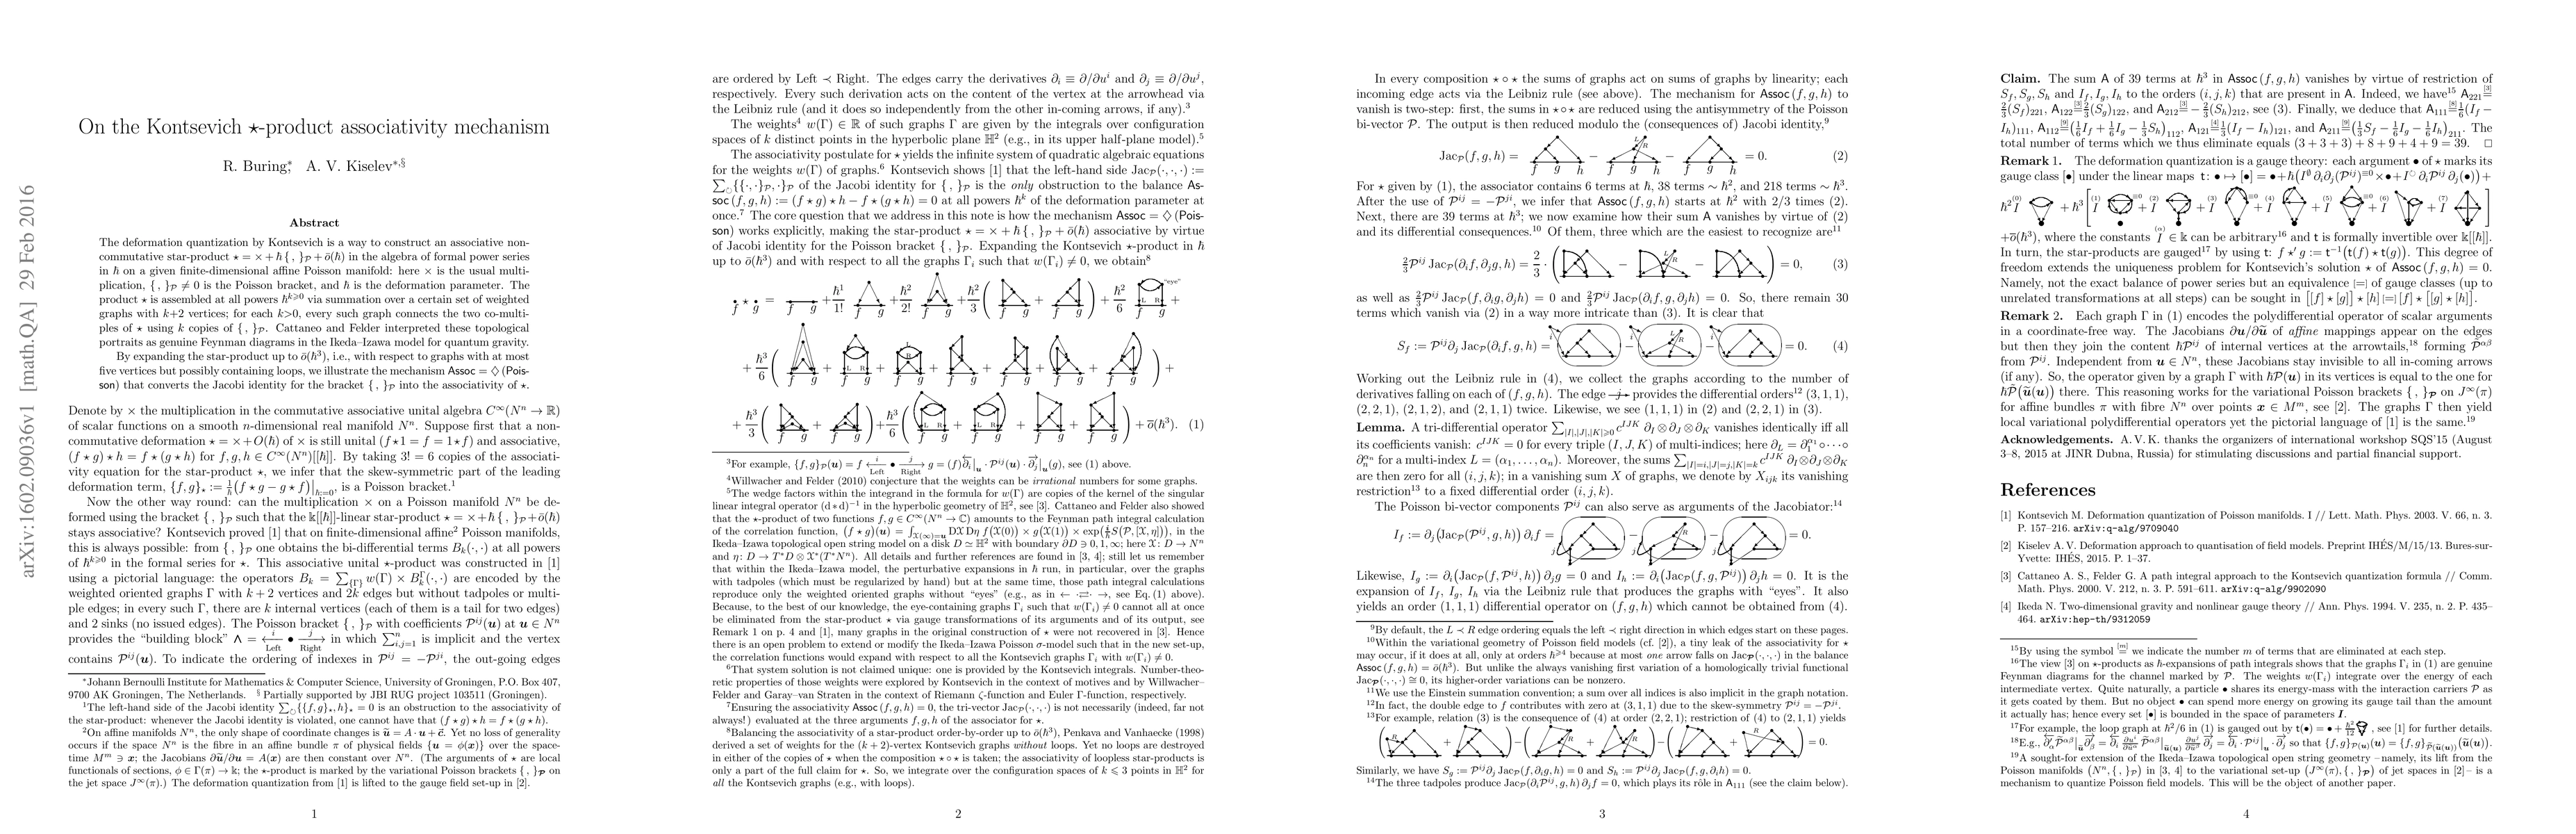 arXiv:1602.09036v1 [math.QA] 29 Feb 2016
On the Kontsevich ⋆-product associativity mechanism
R. Buring*, A. V. Kiselev*,§
Abstract
The deformation quantization by Kontsevich is a way to construct an associative non-
commutative star-product ⋆ = × + ℏ { , }𝒫 + ō(ℏ) in the algebra of formal power series
in ℏ on a given finite-dimensional affine Poisson manifold: here × is the usual multi-
plication, { , }𝒫 ≠ 0 is the Poisson bracket, and ℏ is the deformation parameter. The
product ⋆ is assembled at all powers ℏ^{k⩾0} via summation over a certain set of weighted
graphs with k+2 vertices; for each k>0, every such graph connects the two co-multi-
ples of ⋆ using k copies of { , }𝒫. Cattaneo and Felder interpreted these topological
portraits as genuine Feynman diagrams in the Ikeda–Izawa model for quantum gravity.
By expanding the star-product up to ō(ℏ³), i.e., with respect to graphs with at most
five vertices but possibly containing loops, we illustrate the mechanism Assoc = ◇ (Pois-
son) that converts the Jacobi identity for the bracket { , }𝒫 into the associativity of ⋆.
Denote by × the multiplication in the commutative associative unital algebra C^∞(N^n → ℝ)
of scalar functions on a smooth n-dimensional real manifold N^n. Suppose first that a non-
commutative deformation ⋆ = ×+O(ℏ) of × is still unital (f⋆1 = f = 1⋆f) and associative,
(f ⋆ g) ⋆ h = f ⋆ (g ⋆ h) for f, g, h ∈ C^∞(N^n)[[ℏ]]. By taking 3! = 6 copies of the associati-
vity equation for the star-product ⋆, we infer that the skew-symmetric part of the leading
deformation term, {f, g}⋆ := 1/ℏ (f ⋆ g − g ⋆ f)|_{ℏ:=0}, is a Poisson bracket.¹
Now the other way round: can the multiplication × on a Poisson manifold N^n be de-
formed using the bracket { , }𝒫 such that the 𝕜[[ℏ]]-linear star-product ⋆ = ×+ℏ { , }𝒫+ō(ℏ)
stays associative? Kontsevich proved [1] that on finite-dimensional affine² Poisson manifolds,
this is always possible: from { , }𝒫 one obtains the bi-differential terms B_k(·, ·) at all powers
of ℏ^{k⩾0} in the formal series for ⋆. This associative unital ⋆-product was constructed in [1]
using a pictorial language: the operators B_k = ∑_{Γ} w(Γ) × B_k^Γ(·, ·) are encoded by the
weighted oriented graphs Γ with k + 2 vertices and 2k edges but without tadpoles or multi-
ple edges; in every such Γ, there are k internal vertices (each of them is a tail for two edges)
and 2 sinks (no issued edges). The Poisson bracket { , }𝒫 with coefficients 𝒫^{ij}(u) at u ∈ N^n
provides the “building block” Λ = ←i Left • j→ Right in which ∑_{i,j=1}^n is implicit and the vertex
contains 𝒫^{ij}(u). To indicate the ordering of indexes in 𝒫^{ij} = −𝒫^{ji}, the out-going edges
*Johann Bernoulli Institute for Mathematics & Computer Science, University of Groningen, P.O. Box 407,
9700 AK Groningen, The Netherlands. § Partially supported by JBI RUG project 103511 (Groningen).
¹The left-hand side of the Jacobi identity ∑_↻{{f, g}⋆, h}⋆ = 0 is an obstruction to the associativity of
the star-product: whenever the Jacobi identity is violated, one cannot have that (f ⋆ g) ⋆ h = f ⋆ (g ⋆ h).
²On affine manifolds N^n, the only shape of coordinate changes is ũ = A · u + c⃗. Yet no loss of generality
occurs if the space N^n is the fibre in an affine bundle π of physical fields {u = ϕ(x)} over the space-
time M^m ∋ x; the Jacobians ∂ũ/∂u = A(x) are then constant over N^n. (The arguments of ⋆ are local
functionals of sections, ϕ ∈ Γ(π) → 𝕜; the ⋆-product is marked by the variational Poisson brackets { , }𝒫 on
the jet space J^∞(π).) The deformation quantization from [1] is lifted to the gauge field set-up in [2].
1
are ordered by Left ≺ Right. The edges carry the derivatives ∂_i ≡ ∂/∂u^i and ∂_j ≡ ∂/∂u^j,
respectively. Every such derivation acts on the content of the vertex at the arrowhead via
the Leibniz rule (and it does so independently from the other in-coming arrows, if any).³
The weights⁴ w(Γ) ∈ ℝ of such graphs Γ are given by the integrals over configuration
spaces of k distinct points in the hyperbolic plane ℍ² (e.g., in its upper half-plane model).⁵
The associativity postulate for ⋆ yields the infinite system of quadratic algebraic equations
for the weights w(Γ) of graphs.⁶ Kontsevich shows [1] that the left-hand side Jac𝒫(·, ·, ·) :=
∑_↻{{·, ·}𝒫, ·}𝒫 of the Jacobi identity for { , }𝒫 is the only obstruction to the balance As-
soc (f, g, h) := (f ⋆ g) ⋆ h − f ⋆ (g ⋆ h) = 0 at all powers ℏ^k of the deformation parameter at
once.⁷ The core question that we address in this note is how the mechanism Assoc = ◇ (Pois-
son) works explicitly, making the star-product ⋆ = × + ℏ { , }𝒫 + ō(ℏ) associative by virtue
of Jacobi identity for the Poisson bracket { , }𝒫. Expanding the Kontsevich ⋆-product in ℏ
up to ō(ℏ³) and with respect to all the graphs Γ_i such that w(Γ_i) ≠ 0, we obtain⁸
f ⋆ g = f g + ℏ¹/1! f g + ℏ²/2! f g + ℏ²/3 ( f g + f g ) + ℏ²/6 “eye” L R f g +
+ ℏ³/6 ( f g + L R f g + L R f g + f g + f g + f g + f g + f g ) +
+ ℏ³/3 ( f g + f g ) + ℏ³/6 ( L R f g + L R f g + f g + f g ) + ō(ℏ³). (1)
³For example, {f, g}𝒫(u) = f ←i Left • j→ Right g = (f)∂⃖_i|_u · 𝒫^{ij}(u) · ∂⃗_j|_u(g), see (1) above.
⁴Willwacher and Felder (2010) conjecture that the weights can be irrational numbers for some graphs.
⁵The wedge factors within the integrand in the formula for w(Γ) are copies of the kernel of the singular
linear integral operator (d∗d)^{−1} in the hyperbolic geometry of ℍ², see [3]. Cattaneo and Felder also showed
that the ⋆-product of two functions f, g ∈ C^∞(N^n → ℂ) amounts to the Feynman path integral calculation
of the correlation function, (f ⋆ g)(u) = ∫_{𝒳(∞)=u} D𝒳 Dη f(𝒳(0)) × g(𝒳(1)) × exp(i/ℏ S(𝒫, [𝒳, η])), in the
Ikeda–Izawa topological open string model on a disk D ≃ ℍ² with boundary ∂D ∋ 0, 1, ∞; here 𝒳: D → N^n
and η: D → T*D ⊗ 𝒳*(T*N^n). All details and further references are found in [3, 4]; still let us remember
that within the Ikeda–Izawa model, the perturbative expansions in ℏ run, in particular, over the graphs
with tadpoles (which must be regularized by hand) but at the same time, those path integral calculations
reproduce only the weighted oriented graphs without “eyes” (e.g., as in ← ⇄ →, see Eq. (1) above).
Because, to the best of our knowledge, the eye-containing graphs Γ_i such that w(Γ_i) ≠ 0 cannot all at once
be eliminated from the star-product ⋆ via gauge transformations of its arguments and of its output, see
Remark 1 on p. 4 and [1], many graphs in the original construction of ⋆ were not recovered in [3]. Hence
there is an open problem to extend or modify the Ikeda–Izawa Poisson σ-model such that in the new set-up,
the correlation functions would expand with respect to all the Kontsevich graphs Γ_i with w(Γ_i) ≠ 0.
⁶That system solution is not claimed unique: one is provided by the Kontsevich integrals. Number-theo-
retic properties of those weights were explored by Kontsevich in the context of motives and by Willwacher–
Felder and Garay–van Straten in the context of Riemann ζ-function and Euler Γ-function, respectively.
⁷Ensuring the associativity Assoc (f, g, h) = 0, the tri-vector Jac𝒫(·, ·, ·) is not necessarily (indeed, far not
always!) evaluated at the three arguments f, g, h of the associator for ⋆.
⁸Balancing the associativity of star-product order-by-order up to ō(ℏ³), Penkava and Vanhaecke (1998)
derived a set of weights for the (k + 2)-vertex Kontsevich graphs without loops. Yet no loops are destroyed
in either of the copies of ⋆ when the composition ⋆ ∘ ⋆ is taken; the associativity of loopless star-products
is only a part of the full claim for ⋆. So, we integrate over the configuration spaces of k ⩽ 3 points in ℍ² for
all the Kontsevich graphs (e.g., with loops).
2
In every composition ⋆ ∘ ⋆ the sums of graphs act on sums of graphs by linearity; each
incoming edge acts via the Leibniz rule (see above). The mechanism for Assoc (f, g, h) to
vanish is two-step: first, the sums in ⋆∘⋆ are reduced using the antisymmetry of the Poisson
bi-vector 𝒫. The output is then reduced modulo the (consequences of) Jacobi identity,⁹
Jac𝒫(f, g, h) = f g h − L R f g h − f g h = 0. (2)
For ⋆ given by (1), the associator contains 6 terms at ℏ, 38 terms ∼ ℏ², and 218 terms ∼ ℏ³.
After the use of 𝒫^{ij} = −𝒫^{ji}, we infer that Assoc (f, g, h) starts at ℏ² with 2/3 times (2).
Next, there are 39 terms at ℏ³; we now examine how their sum A vanishes by virtue of (2)
and its differential consequences.¹⁰ Of them, three which are the easiest to recognize are¹¹
⅔𝒫^{ij} Jac𝒫(∂_i f, ∂_j g, h) = 2/3 · ( − L R − ) = 0, (3)
as well as ⅔𝒫^{ij} Jac𝒫(f, ∂_i g, ∂_j h) = 0 and ⅔𝒫^{ij} Jac𝒫(∂_i f, g, ∂_j h) = 0. So, there remain 30
terms which vanish via (2) in a way more intricate than (3). It is clear that
S_f := 𝒫^{ij}∂_j Jac𝒫(∂_i f, g, h) = i − i L R − i = 0. (4)
Working out the Leibniz rule in (4), we collect the graphs according to the number of
derivatives falling on each of (f, g, h). The edge —j→ provides the differential orders¹² (3, 1, 1),
(2, 2, 1), (2, 1, 2), and (2, 1, 1) twice. Likewise, we see (1, 1, 1) in (2) and (2, 2, 1) in (3).
Lemma. A tri-differential operator ∑_{|I|,|J|,|K|⩾0} c^{IJK} ∂_I ⊗ ∂_J ⊗ ∂_K vanishes identically iff all
its coefficients vanish: c^{IJK} = 0 for every triple (I, J, K) of multi-indices; here ∂_L = ∂_1^{α_1} ∘ ··· ∘
∂_n^{α_n} for a multi-index L = (α_1, . . . , α_n). Moreover, the sums ∑_{|I|=i,|J|=j,|K|=k} c^{IJK} ∂_I⊗∂_J⊗∂_K
are then zero for all (i, j, k); in a vanishing sum X of graphs, we denote by X_{ijk} its vanishing
restriction¹³ to a fixed differential order (i, j, k).
The Poisson bi-vector components 𝒫^{ij} can also serve as arguments of the Jacobiator:¹⁴
I_f := ∂_j (Jac𝒫(𝒫^{ij}, g, h)) ∂_i f = j − j R − j = 0.
Likewise, I_g := ∂_i (Jac𝒫(f, 𝒫^{ij}, h)) ∂_j g = 0 and I_h := ∂_i (Jac𝒫(f, g, 𝒫^{ij})) ∂_j h = 0. It is the
expansion of I_f, I_g, I_h via the Leibniz rule that produces the graphs with “eyes”. It also
yields an order (1, 1, 1) differential operator on (f, g, h) which cannot be obtained from (4).
⁹By default, the L ≺ R edge ordering equals the left ≺ right direction in which edges start on these pages.
¹⁰Within the variational geometry of Poisson field models (cf. [2]), a tiny leak of the associativity for ⋆
may occur, if it does at all, only at orders ℏ^{⩾4} because at most one arrow falls on Jac𝒫(·, ·, ·) in the balance
Assoc (f, g, h) = ō(ℏ³). But unlike the always vanishing first variation of a homologically trivial functional
Jac𝒫(·, ·, ·) ≅ 0, its higher-order variations can be nonzero.
¹¹We use the Einstein summation convention; a sum over all indices is also implicit in the graph notation.
¹²In fact, the double edge to f contributes with zero at (3, 1, 1) due to the skew-symmetry 𝒫^{ij} = −𝒫^{ji}.
¹³For example, relation (3) is the consequence of (4) at order (2, 2, 1); restriction of (4) to (2, 1, 1) yields
( R + ) − ( R + R ) − ( + R ) = 0.
Similarly, we have S_g := 𝒫^{ij}∂_j Jac𝒫(f, ∂_i g, h) = 0 and S_h := 𝒫^{ij}∂_j Jac𝒫(f, g, ∂_i h) = 0.
¹⁴The three tadpoles produce Jac𝒫(∂_i𝒫^{ij}, g, h) ∂_j f = 0, which plays its rôle in A_{111} (see the claim below).
3
Claim. The sum A of 39 terms at ℏ³ in Assoc (f, g, h) vanishes by virtue of restriction of
S_f, S_g, S_h and I_f, I_g, I_h to the orders (i, j, k) that are present in A. Indeed, we have¹⁵ A_{221} =^{[3]}
⅔(S_f)_{221}, A_{122} =^{[3]} ⅔(S_g)_{122}, and A_{212} =^{[3]} −⅔(S_h)_{212}, see (3). Finally, we deduce that A_{111} =^{[8]} ⅙(I_f −
I_h)_{111}, A_{112} =^{[9]} (⅙I_f + ⅙I_g − ⅓S_h)_{112}, A_{121} =^{[4]} ⅓(I_f − I_h)_{121}, and A_{211} =^{[9]} (⅓S_f − ⅙I_g − ⅙I_h)_{211}. The
total number of terms which we thus eliminate equals (3 + 3 + 3) + 8 + 9 + 4 + 9 = 39. □
Remark 1. The deformation quantization is a gauge theory: each argument • of ⋆ marks its
gauge class [•] under the linear maps t: • ↦ [•] = •+ℏ(I^∅ ∂_i∂_j(𝒫^{ij})^{≡0} × •+I^↻ ∂_i𝒫^{ij} ∂_j(•))+
ℏ² I^{(0)} + ℏ³ [ I^{(1)} ≡0 + I^{(2)} + I^{(3)} ≡0 + I^{(4)} + I^{(5)} ≡0 + I^{(6)} + I^{(7)} ]
+ō(ℏ³), where the constants I^{(α)} ∈ 𝕜 can be arbitrary¹⁶ and t is formally invertible over 𝕜[[ℏ]].
In turn, the star-products are gauged¹⁷ by using t: f ⋆′ g := t^{−1}(t(f) ⋆ t(g)). This degree of
freedom extends the uniqueness problem for Kontsevich’s solution ⋆ of Assoc (f, g, h) = 0.
Namely, not the exact balance of power series but an equivalence [=] of gauge classes (up to
unrelated transformations at all steps) can be sought in [[f] ⋆ [g]] ⋆ [h] [=] [f] ⋆ [[g] ⋆ [h]].
Remark 2. Each graph Γ in (1) encodes the polydifferential operator of scalar arguments
in a coordinate-free way. The Jacobians ∂u/∂ũ of affine mappings appear on the edges
but then they join the content ℏ𝒫^{ij} of internal vertices at the arrowtails,¹⁸ forming 𝒫̃^{αβ}
from 𝒫^{ij}. Independent from u ∈ N^n, these Jacobians stay invisible to all in-coming arrows
(if any). So, the operator given by a graph Γ with ℏ𝒫(u) in its vertices is equal to the one for
ℏ𝒫̃(ũ(u)) there. This reasoning works for the variational Poisson brackets { , }𝒫 on J^∞(π)
for affine bundles π with fibre N^n over points x ∈ M^m, see [2]. The graphs Γ then yield
local variational polydifferential operators yet the pictorial language of [1] is the same.¹⁹
Acknowledgements. A. V. K. thanks the organizers of international workshop SQS’15 (August
3–8, 2015 at JINR Dubna, Russia) for stimulating discussions and partial financial support.
References
[1] Kontsevich M. Deformation quantization of Poisson manifolds. I // Lett. Math. Phys. 2003. V. 66, n. 3.
P. 157–216. arXiv:q-alg/9709040
[2] Kiselev A. V. Deformation approach to quantisation of field models. Preprint IHÉS/M/15/13. Bures-sur-
Yvette: IHÉS, 2015. P. 1–37.
[3] Cattaneo A. S., Felder G. A path integral approach to the Kontsevich quantization formula // Comm.
Math. Phys. 2000. V. 212, n. 3. P. 591–611. arXiv:q-alg/9902090
[4] Ikeda N. Two-dimensional gravity and nonlinear gauge theory // Ann. Phys. 1994. V. 235, n. 2. P. 435–
464. arXiv:hep-th/9312059
¹⁵By using the symbol =^{[m]} we indicate the number m of terms that are eliminated at each step.
¹⁶The view [3] on ⋆-products as ℏ-expansions of path integrals shows that the graphs Γ_i in (1) are genuine
Feynman diagrams for the channel marked by 𝒫. The weights w(Γ_i) integrate over the energy of each
intermediate vertex. Quite naturally, a particle • shares its energy-mass with the interaction carriers 𝒫 as
it gets coated by them. But no object • can spend more energy on growing its gauge tail than the amount
it actually has; hence every set [•] is bounded in the space of parameters I.
¹⁷For example, the loop graph at ℏ²/6 in (1) is gauged out by t(•) = • + ℏ²/12 , see [1] for further details.
¹⁸E.g., ∂⃖_α 𝒫̃^{αβ}|_ũ ∂⃗_β = ∂⃖_i ∂u^i/∂ũ^α 𝒫̃^{αβ}|_{ũ(u)} ∂u^j/∂ũ^β ∂⃗_j = ∂⃖_i · 𝒫^{ij}|_u · ∂⃗_j so that {f, g}_{𝒫(u)}(u) = {f, g}_{𝒫̃(ũ(u))}(ũ(u)).
¹⁹A sought-for extension of the Ikeda–Izawa topological open string geometry – namely, its lift from the
Poisson manifolds (N^n, { , }𝒫) in [3, 4] to the variational set-up (J^∞(π), { , }𝒫) of jet spaces in [2] – is a
mechanism to quantize Poisson field models. This will be the object of another paper.
4